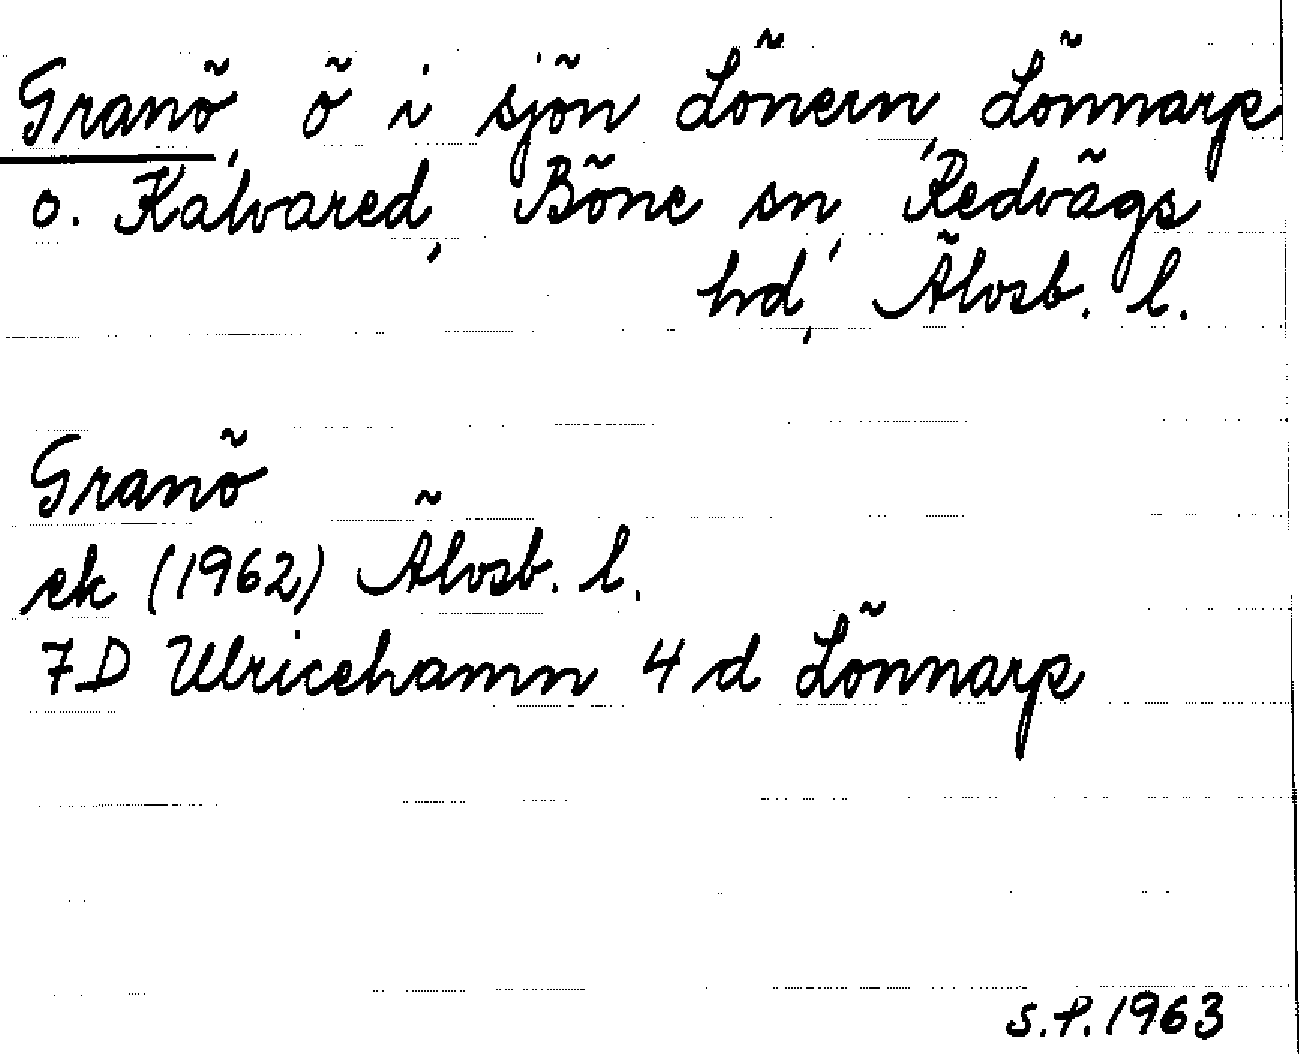 Granö, ö i sjön Lönern, Lönnarp
o. Kalvared, Böne sn, Redvägs
hd, Älvsb. l.
Granö
ek (1962) Älvsb. l.
7D Ulricehamn 4 d Lönnarp
S.P. 1963